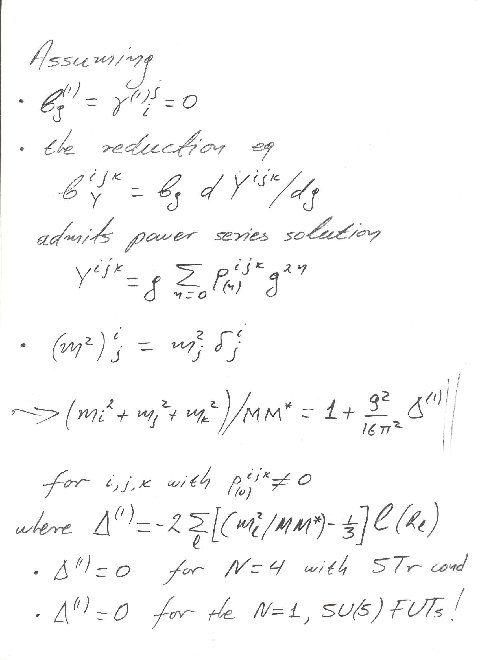 Assuming
• β_g^{(1)} = γ^{(1)j}_i = 0
• the reduction eq
β_Y^{ijk} = β_g d Y^{ijk}/dg
admits power series solution
Y^{ijk} = g Σ_{n=0} ρ_{(n)}^{ijk} g^{2n}
• (m²)^i_j = m_j² δ^i_j
→ (m_i² + m_j² + m_k²)/MM* = 1 + g²/16π² Δ^{(1)}
for i,j,k with ρ_{(0)}^{ijk} ≠ 0
where Δ^{(1)} = -2 Σ_l [(m_l²/MM*) - 1/3] l(R_l)
• Δ^{(1)} = 0 for N=4 with STr cond
• Δ^{(1)} = 0 for the N=1, SU(5) FUTs!